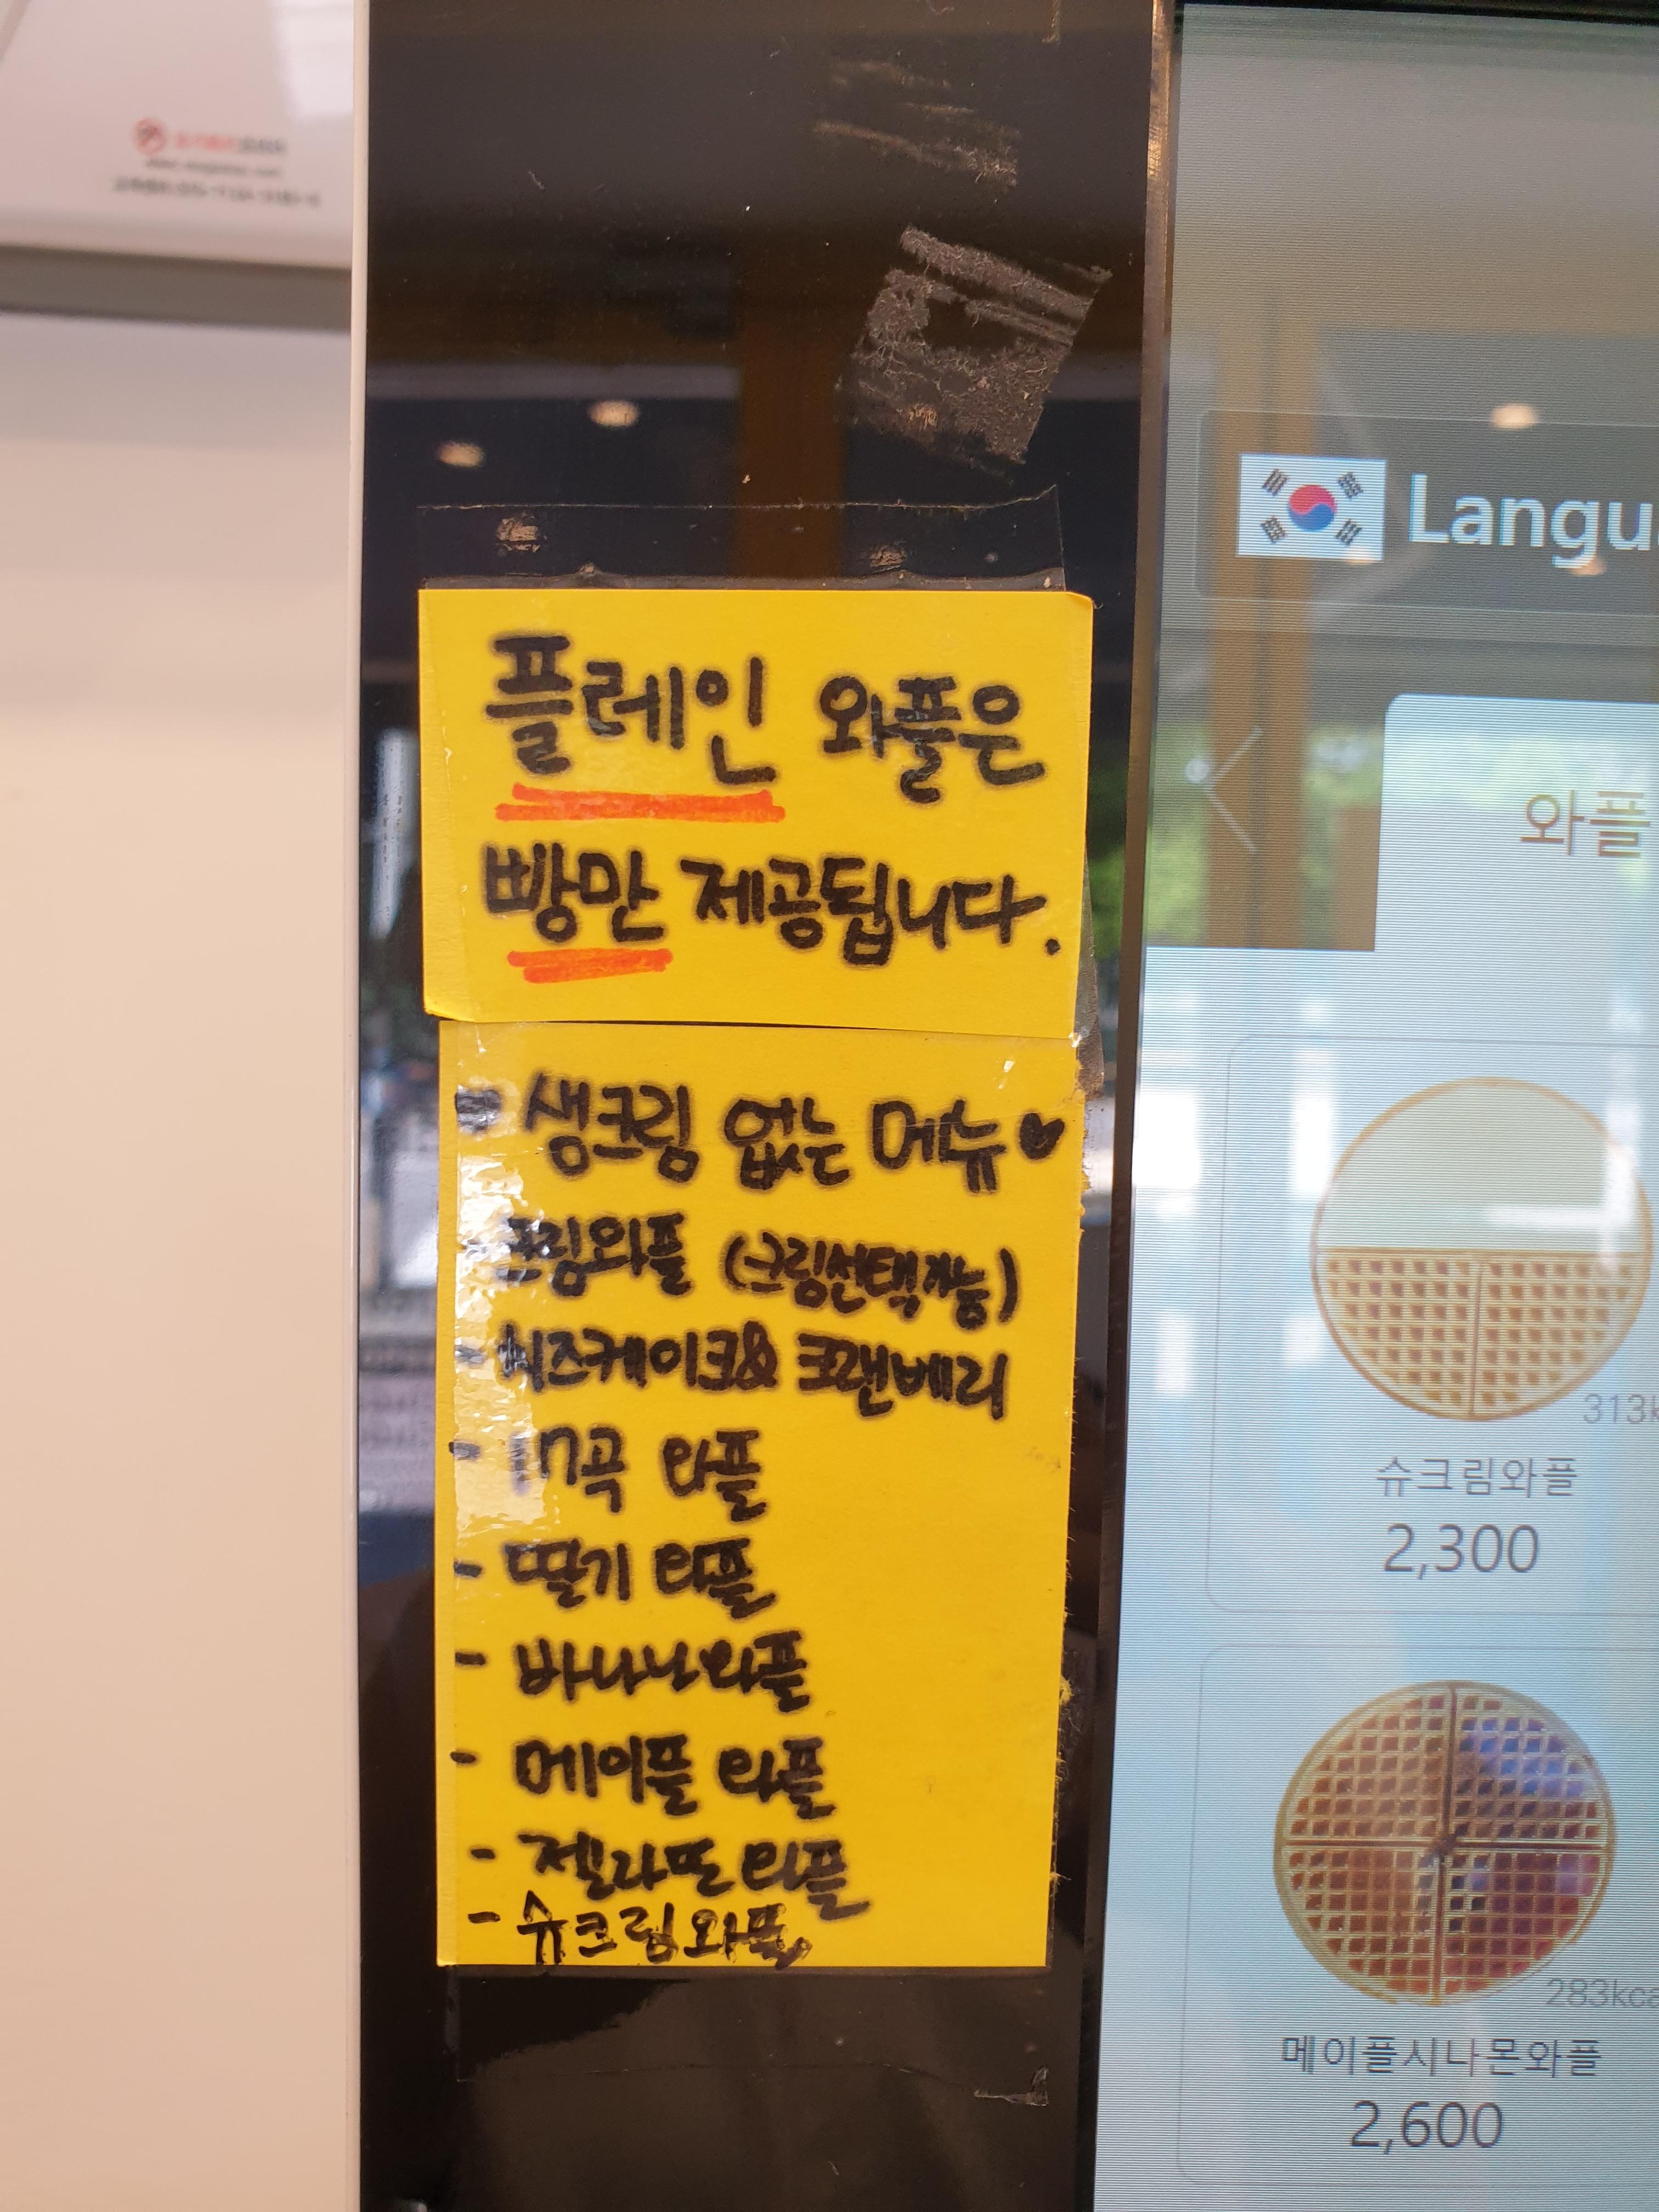 플레인 와플은
빵만 제공됩니다.
생크림 없는 메뉴♥
- 크림와플 (크림선택가능)
- 치즈케이크& 크랜베리
- 17곡 와플
- 딸기 와플
- 바나나와플
- 메이플 와플
- 젤라또 와플
- 슈크림와플
Langu
와플
313k
슈크림와플
2,300
283kca
메이플시나몬와플
2,600